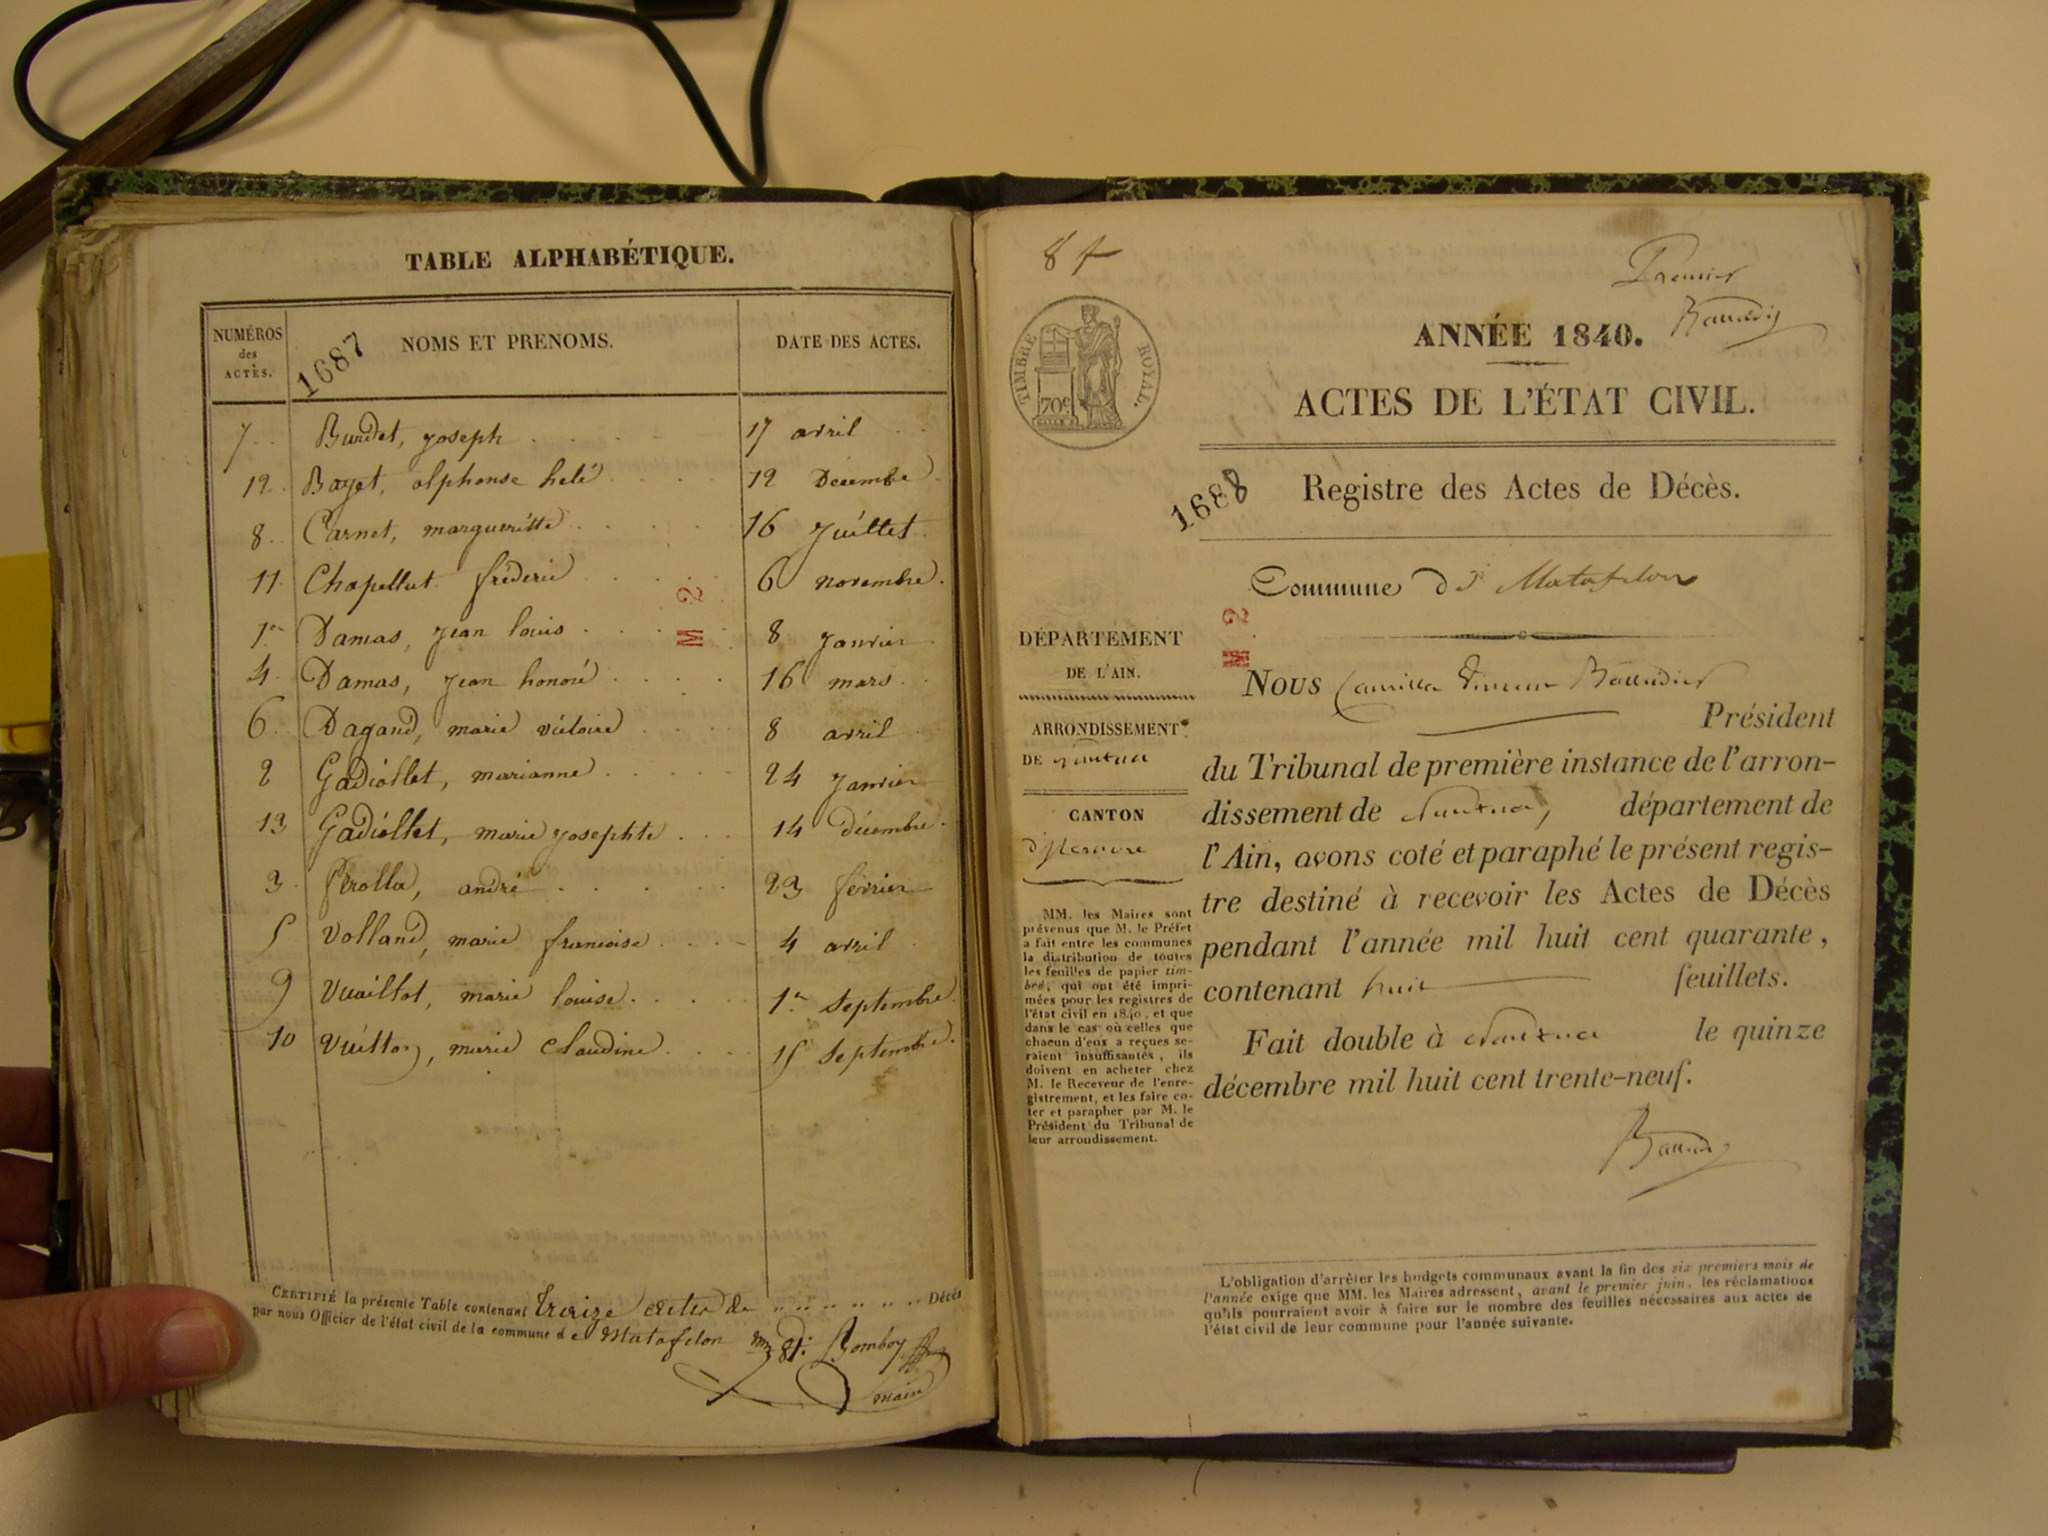 TABLE ALPHABÉTIQUE.
NUMÉROS des ACTES.
1687
NOMS ET PRENOMS.
DATE DES ACTES.
7 Burdet, joseph 17 avril
12 Bayet, alphonse 12 Décembre
8 Carnet, margueritte 16 juillet
11 Chapellut fréderic 6 novembre.
1er Damas, jean louis 8 janvier
4 Damas, jean honoré 16 mars
6 Dagand, marie victoire 8 avril
2 Gadiollet, marianne 24 janvier
13 Gadiollet, marie josephte 14 décembre.
3 andré 23 février
5 Volland, marie francoise 4 avril
9 Vuaillat, marie louise 1er Septembre
10 marie Claudine 15 Septembre.
CERTIFIÉ la présente Table contenant treize actes de Décès
par nous Officier de l'état civil de la commune de Matafelon
Bomboy
maire
8 f
Premier
TIMBRE ROYAL.
70c
ANNÉE 1840.
ACTES DE L'ÉTAT CIVIL.
1688
Registre des Actes de Décès.
Commune de Matafelon
M 2
M 2
DÉPARTEMENT
DE L'AIN.
ARRONDISSEMENT
DE nantua
CANTON
MM. les Maires sont
prévenus que M. le Préfet
a fait entre les communes
la distribution de toutes
les feuilles de papier tim-
bré, qui ont été impri-
mées pour les registres de
l'état civil en 1840, et que
dans le cas où celles que
chacun d'eux a reçues se-
raient insuffisantes, ils
doivent en acheter chez
M. le Receveur de l'enre-
gistrement, et les faire co-
ter et parapher par M. le
Président du Tribunal de
leur arroudissement.
Nous
Président
du Tribunal de première instance de l'arron-
dissement de Nantua, département de
l'Ain, avons coté et paraphé le présent regis-
tre destiné à recevoir les Actes de Décès
pendant l'année mil huit cent quarante,
contenant huit feuillets.
Fait double à Nantua le quinze
décembre mil huit cent trente-neuf.
L'obligation d'arrêter les budgets communaux avant la fin des six premiers mois de
l'année exige que MM. les Maires adressent, avant le premier juin, les réclamations
qu'ils pourraient avoir à faire sur le nombre des feuilles nécessaires aux actes de
l'état civil de leur commune pour l'année suivante.